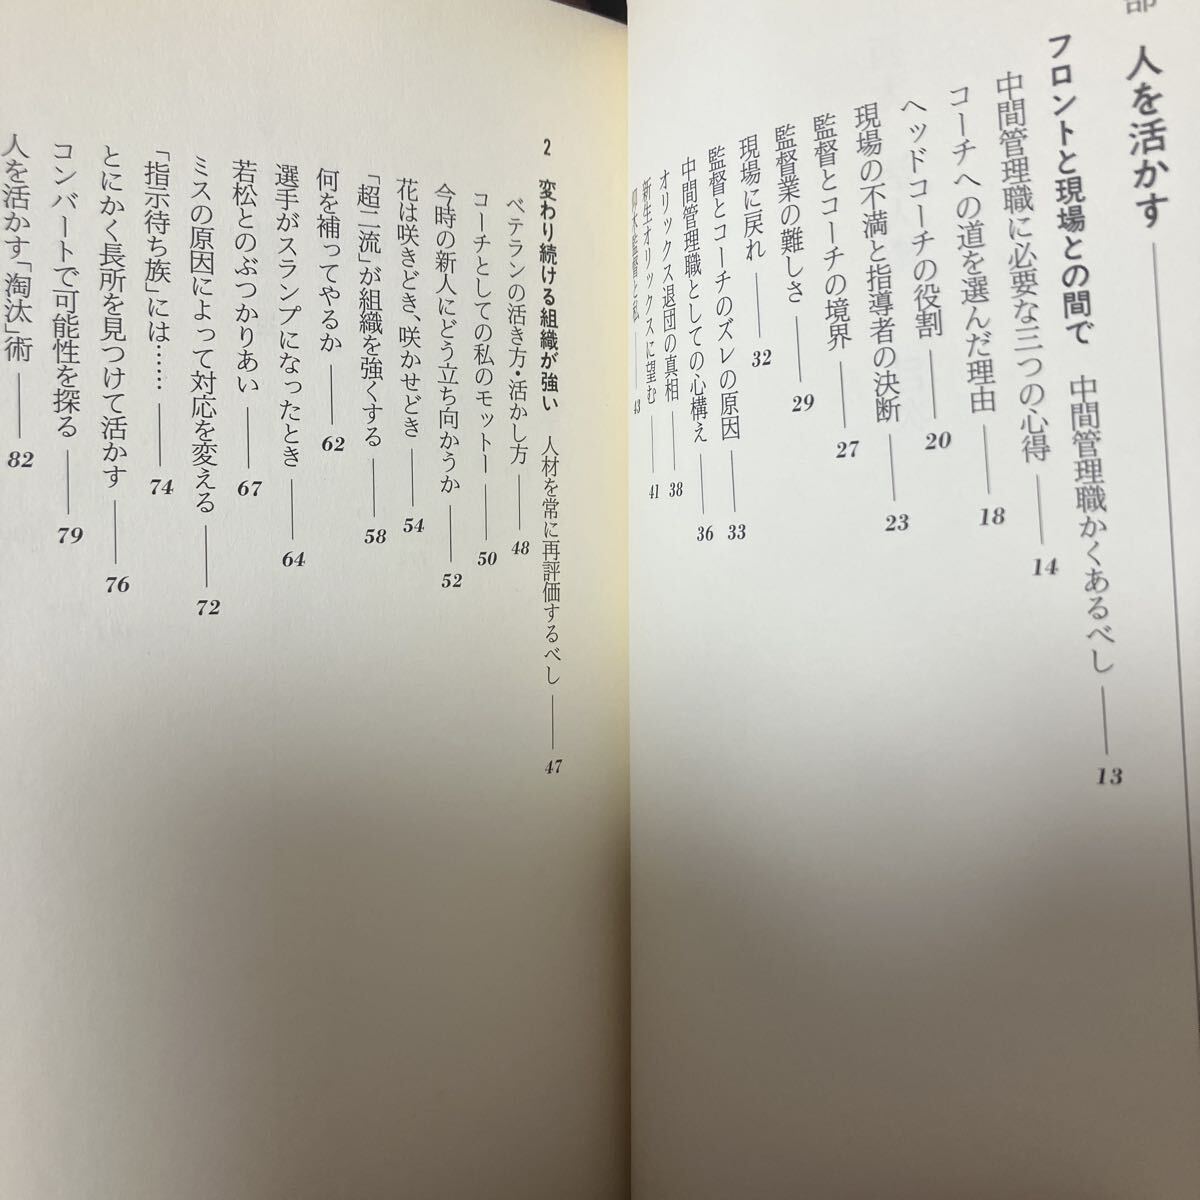 部 人を活かす
フロントと現場との間で 中間管理職かくあるべし 13
中間管理職に必要な三つの心得 14
コーチへの道を選んだ理由 18
ヘッドコーチの役割 20
現場の不満と指導者の決断 23
監督とコーチの境界 27
監督業の難しさ 29
現場に戻れ 32
監督とコーチのズレの原因 33
中間管理職としての心構え 36
オリックス退団の真相 38
新生オリックスに望む 41
仰木監督と私 43
2 変わり続ける組織が強い 人材を常に再評価するべし 47
ベテランの活き方・活かし方 48
コーチとしての私のモットー 50
今時の新人にどう立ち向かうか 52
花は咲きどき、咲かせどき 54
「超二流」が組織を強くする 58
何を補ってやるか 62
選手がスランプになったとき 64
若松とのぶつかりあい 67
ミスの原因によって対応を変える 72
「指示待ち族」には…… 74
とにかく長所を見つけて活かす 76
コンバートで可能性を探る 79
人を活かす「淘汰」術 82